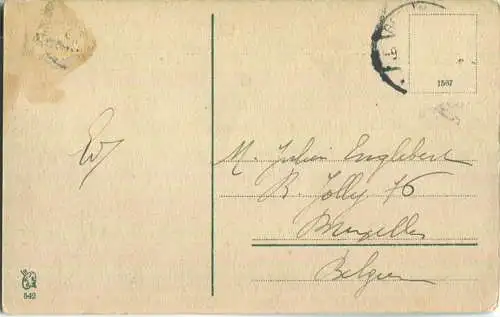 1567
M. Julien Englebert
R. Jolly 76
Bruxelles
Belgien
549